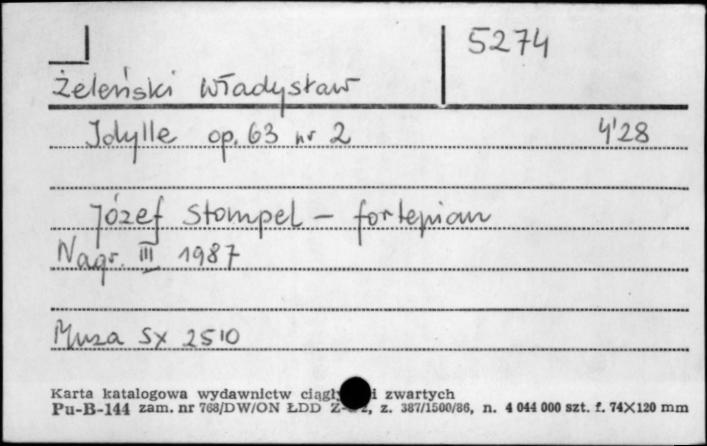 5274
Żeleński Władysław
Idylle op. 63 nr 2 4'28
Józef Stompel - fortepian
Nagr. III 1987
Muza Sx 2510
Karta katalogowa wydawnictw i zwartych
Pu-B-144 zam. nr 768/DW/ON ŁDD z. 387/1500/86, n. 4 044 000 szt. f. 74X120 mm